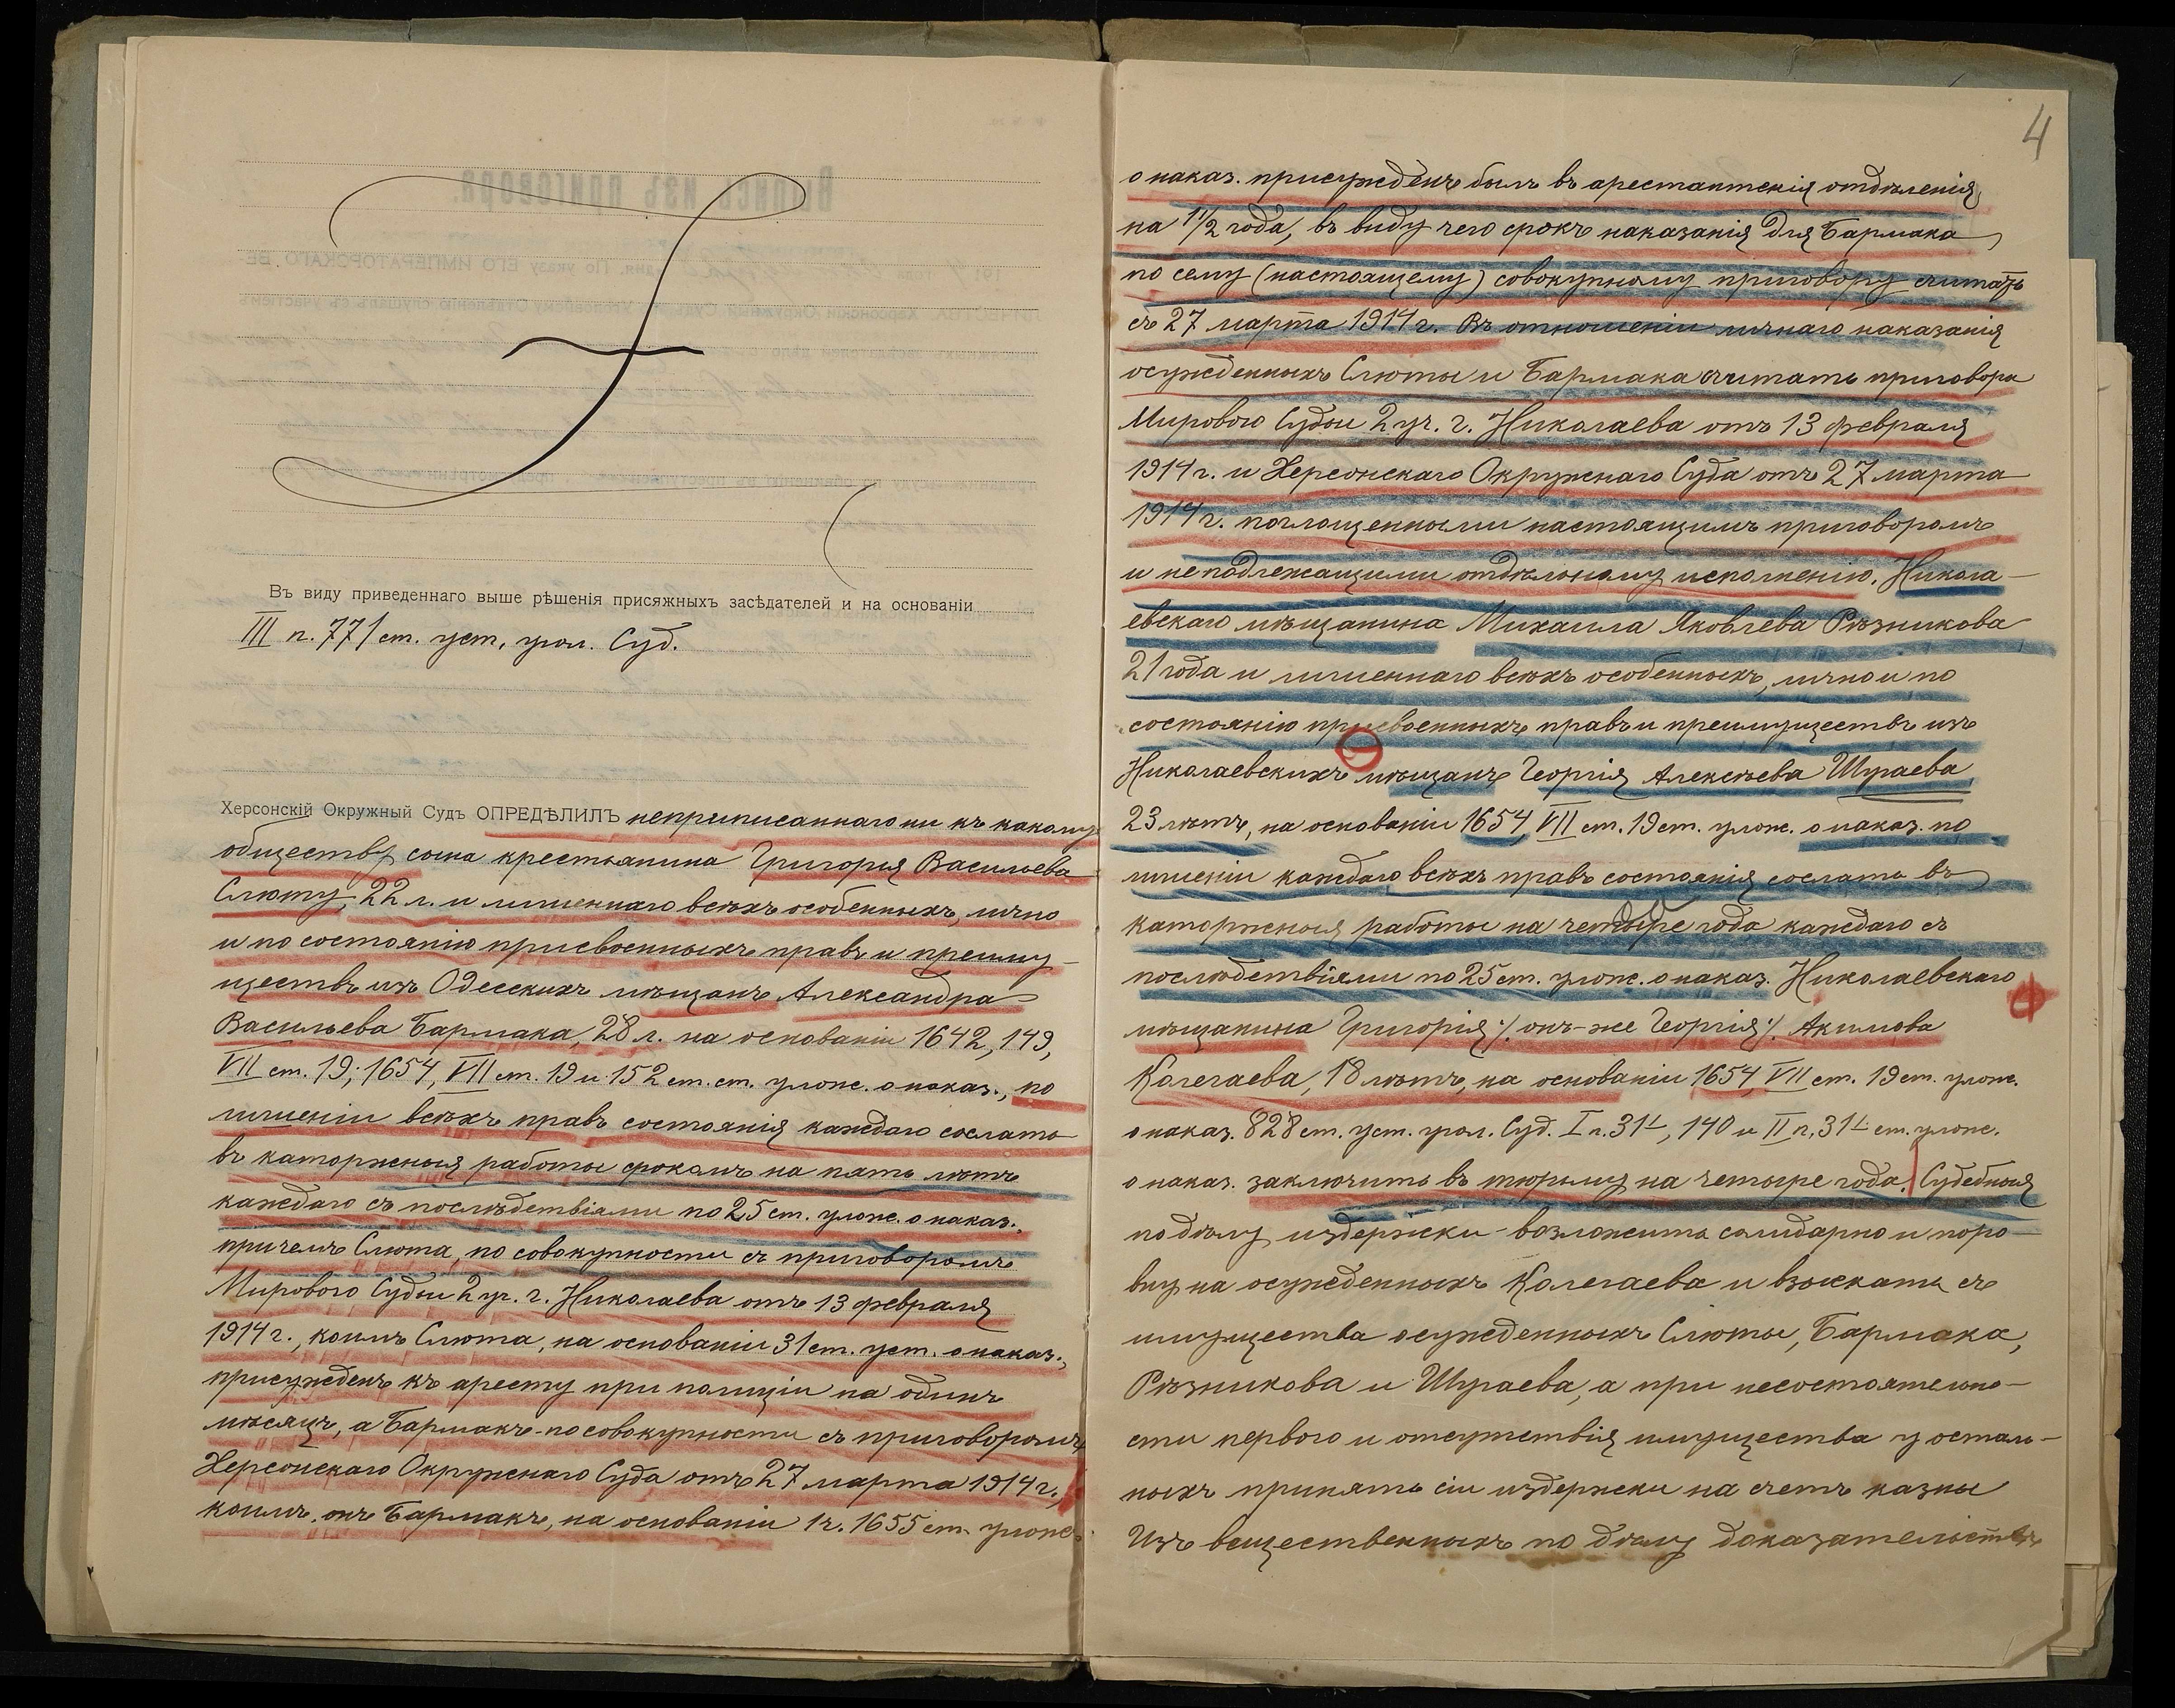 Въ виду приведеннаго выше рѣшенія присяжныхъ засѣдателей и на основаніи
III п. 771 ст. уст. угол. Суд.
Херсонскій Окружный Судъ ОПРЕДѢЛИЛЪ неприписаннаго ни къ какому
обществу сына крестьянина Григорія Васильева
Слюту, 22 л. и лишеннаго всѣхъ особенныхъ, лично
и по состоянію присвоенныхъ правъ и преиму-
ществъ изъ Одесскихъ мѣщанъ Александра
Васильева Бармака, 28 л. на основаніи 1642, 149,
VII ст. 19; 1654, VII ст. 19 и 152 ст. ст. улож. о наказ., по
лишеніи всѣхъ правъ состоянія каждаго сослать
въ каторжныя работы срокомъ на пять лѣтъ
каждаго съ послѣдствіями по 25 ст. улож. о наказ.,
причемъ Слюта, по совокупности съ приговоромъ
Мирового Судьи 2 уч. г. Николаева отъ 13 февраля
1914 г., коимъ Слюта, на основаніи 31 ст. уст. о наказ.,
присужденъ къ аресту при полиціи на одинъ
мѣсяцъ, а Бармакъ - по совокупности съ приговоромъ
Херсонскаго Окружнаго Суда отъ 27 марта 1914 г.,
коимъ онъ Бармакъ, на основаніи 1 ч. 1655 ст. улож.
4
о наказ. присужденъ былъ въ арестантскія отдѣленія
на 1 1/2 года, въ виду чего срокъ наказанія для Бармака
по сему (настоящему) совокупному приговору считать
съ 27 марта 1914 г. Въ отношеніи личнаго наказанія
осужденныхъ Слюты и Бармака считать приговора
Мирового Судьи 2 уч. г. Николаева отъ 13 февраля
1914 г. и Херсонскаго Окружнаго Суда отъ 27 марта
1914 г. поглощенными настоящимъ приговоромъ
и неподлежащими отдѣльному исполненію. Никола-
евскаго мѣщанина Михаила Яковлева Рѣзникова
21 года и лишеннаго всѣхъ особенныхъ, лично и по
состоянію присвоенныхъ правъ и преимуществъ изъ
Николаевскихъ мѣщанъ Георгія Алексѣева Шураева
23 лѣтъ, на основаніи 1654, VII ст. 19 ст. улож. о наказ. по
лишеніи каждаго всѣхъ правъ состоянія сослать въ
каторжныя работы на четыре года каждаго съ
послѣдствіями по 25 ст. улож. о наказ. Николаевскаго
мѣщанина Григорія /. онъ-же Георгія /. Акимова
Колегаева, 18 лѣтъ, на основаніи 1654, VII ст. 19 ст. улож.
о наказ. 828 ст. уст. угол. Суд. I п. 31¹, 140 и II п. 31¹ ст. улож.
о наказ. заключить въ тюрьму на четыре года. Судебныя
по дѣлу издержки - возложить солидарно и поро-
вну на осужденныхъ Колегаева и взыскать съ
имущества осужденныхъ Слюты, Бармака,
Рѣзникова и Шураева, а при несостоятельно-
сти первого и отсутствія имущества у осталь-
ныхъ принять сіи издержки на счетъ казны
Изъ вещественныхъ по дѣлу доказательствъ